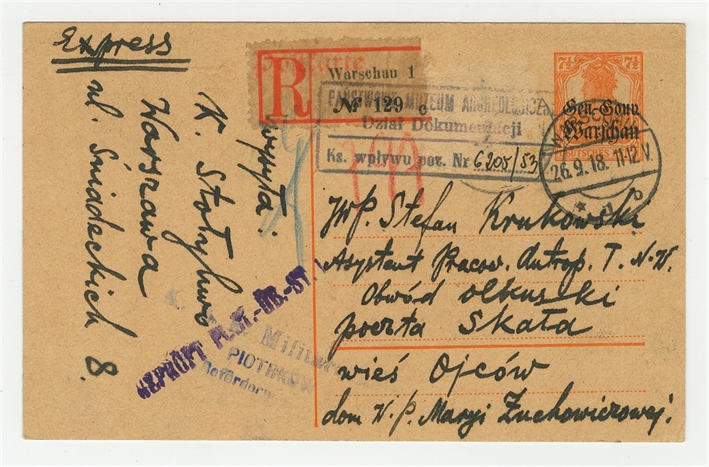 Express
R
Warschau 1
№ 129 c
PAŃSTWOWE MUZEUM ARCHEOLOGICZ
Dział Dokumentacji
Ks. wpływu poz. Nr 6205/53
7½ 7½
Gen.-Gouv.
Warschau
26.9.18. 11-12 V.
wysyła:
K. Stołyhwo
Warszawa
ul. Śniadeckich 8.
JWP. Stefan Krukowski
Asystent Pracow. Antrop. T. N. W.
Obwód olkuski
poczta Skała
wieś Ojców
dom W. P. Maryi Zuchowiczowej.
GEPRÜFT
Militär
PIOTRKÓW